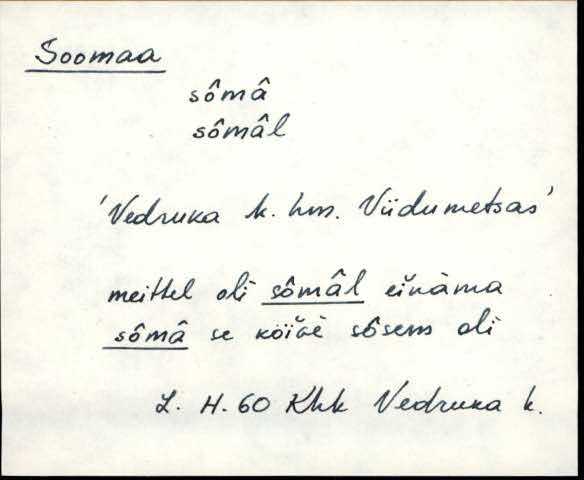 Soomaa
sômâ
sômâl
'Vedruka k. hm. Viidumetsas'
meittel oli sômâl eìnàma
sômâ se kõìǐè sôsem oli
L. H. 60 Khk Vedruka k.